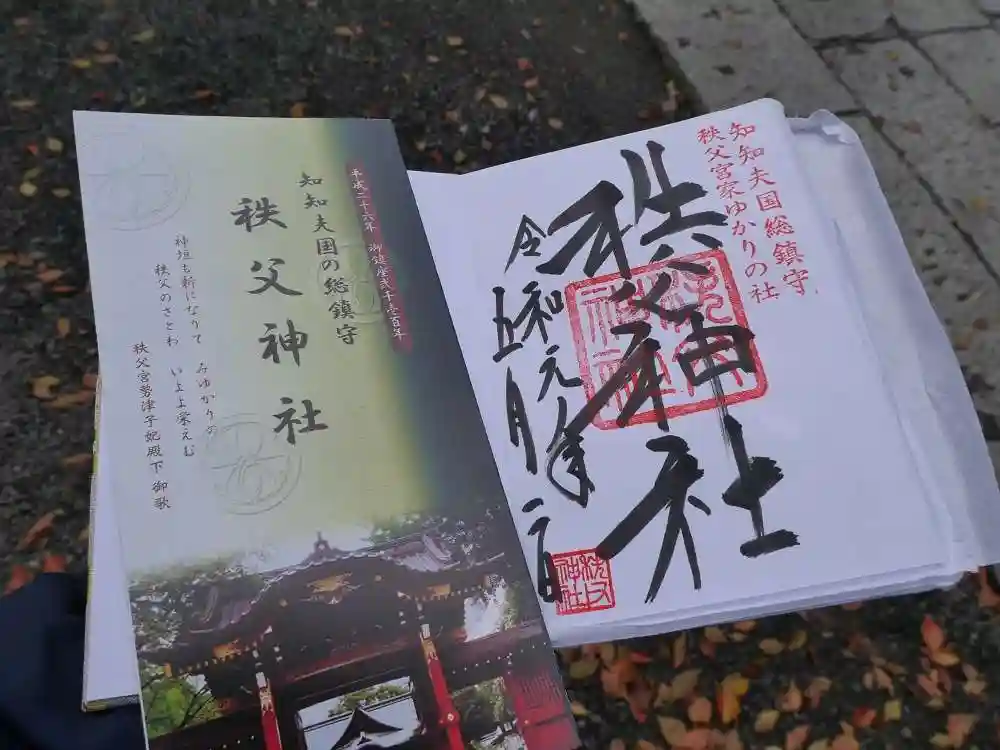 平成二十六年 御鎮座弐千壱百年
知知夫国の総鎮守
秩父神社
神垣も新になりて みゆかりの
秩父のさとわ いよよ栄えむ
秩父宮勢津子妃殿下 御歌
知知夫国総鎮守
秩父宮家ゆかりの社
秩父神社
令和元年
五月二日
秩父
神社